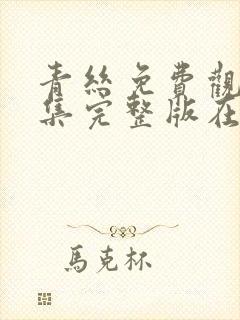 青絲免費觀
集完整版在
馬克杯